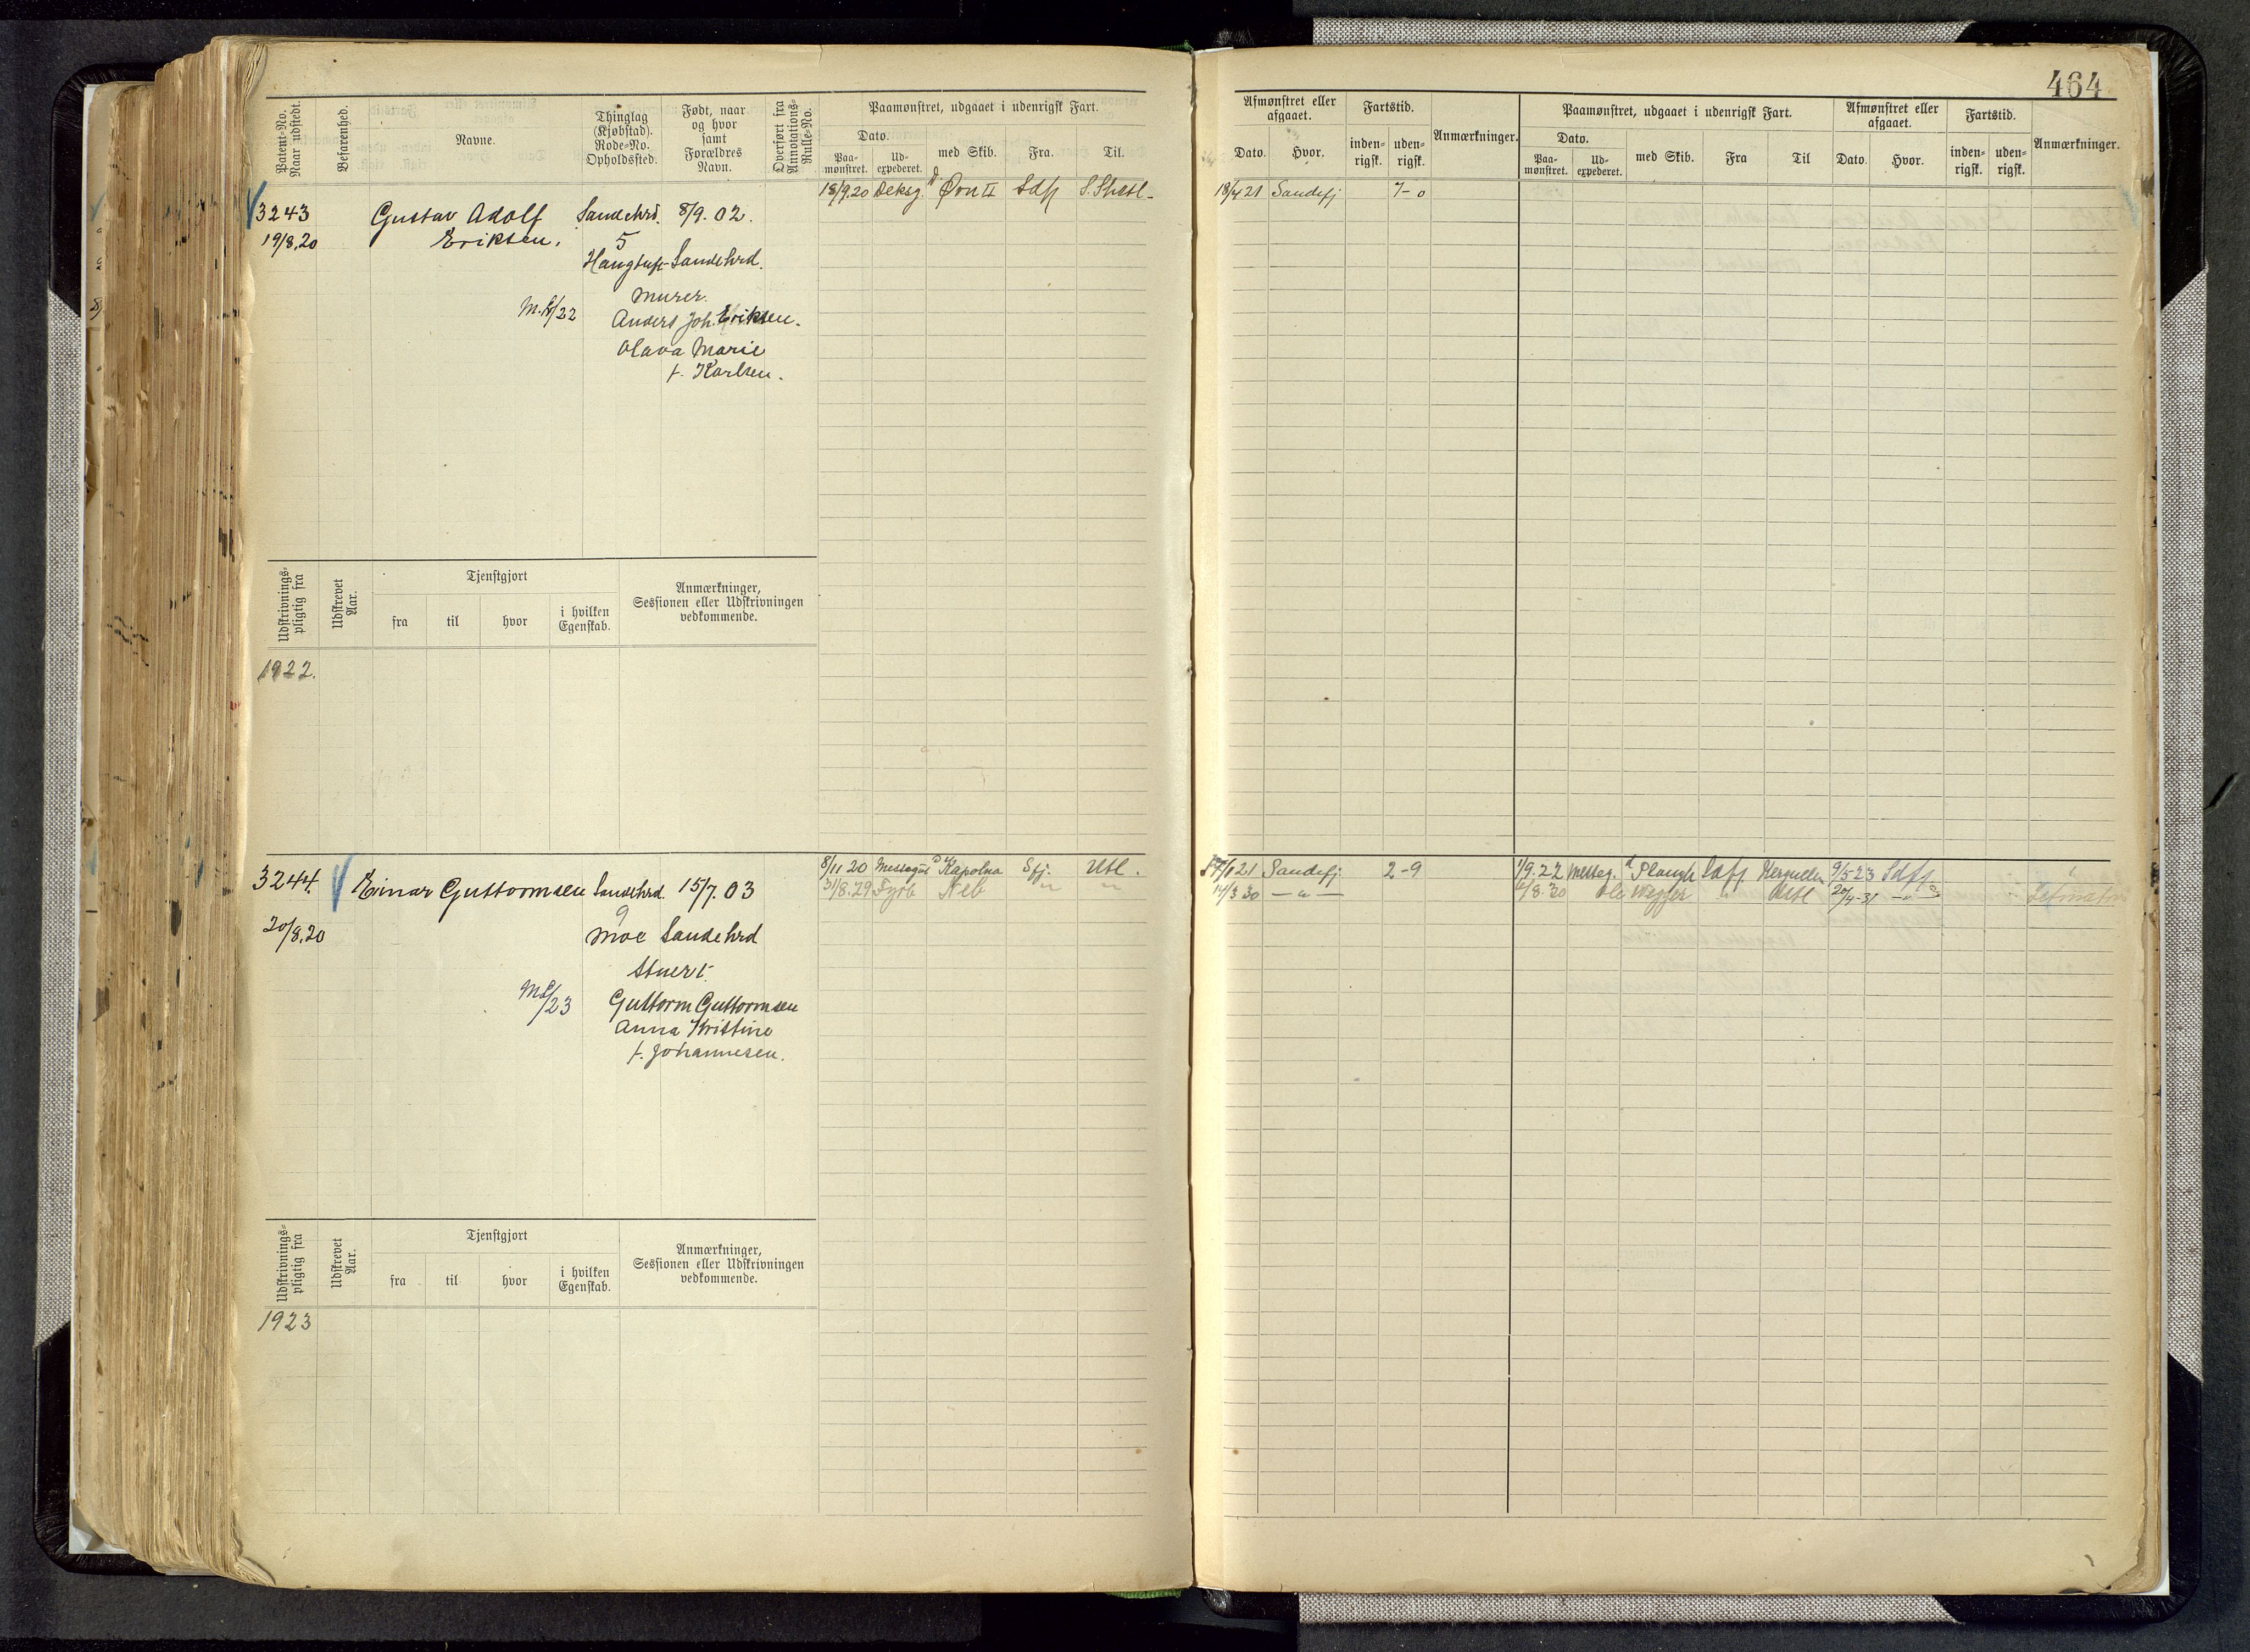 464
Patent-No. Naar udstedt.
Befarenhed.
Navne.
Thinglag (Kjøbstad). Rode-No. Opholdssted.
Født, naar og hvor samt Forældres Navn.
Overført fra Annotations-Rulle-No.
Paamønstret, udgaaet i udenrigsk Fart.
Dato.
Paa-mønstret.
Ud-expederet.
med Skib.
Fra.
Til.
Afmønstret eller afgaaet.
Dato.
Hvor.
Fartstid.
inden-rigsk.
uden-rigsk.
Anmærkninger.
Paamønstret, udgaaet i udenrigsk Fart.
Dato.
Paa-mønstret.
Ud-expederet.
med Skib.
Fra
Til
Afmønstret eller afgaaet.
Dato.
Hvor.
Fartstid.
inden-rigsk.
uden-rigsk.
Anmærkninger.
3243
19/8.20
Gustav Adolf
Eriksen.
Sandehrd. 8/9. 02.
5
Haugtuft Sandehrd.
Murer.
Anders Joh. Eriksen.
Olava Marie
f. Karlsen.
18/9.20 Deksg. Ørn II Sdfj S. Shetl.
18/4 21 Sandefj 7-0
Udskrivnings-pligtig fra
Udskrevet Aar.
Tjenstgjort
fra
til
hvor
i hvilken Egenskab.
Anmærkninger, Sessionen eller Udskrivningen vedkommende.
1922.
3244.
20/8.20
Einar Guttormsen
Sandehrd. 15/7. 03
9
Moe Sandehrd
Stuert.
Guttorm Guttormsen
Anna Kristine
f. Johannesen.
8/11 20 Messegut Kapolna Sfj. Utl.
31/8.29 Fyrb
21 Sandefj. 2-9
14/3 30 — " —
1/9.22 Messeg. Plaugh Safj Kerguelen 9/5-23 Sdfj
8.30 Ole Wegger Utl 20/4-31 — " —
Udskrivnings-pligtig fra
Udskrevet Aar.
Tjenstgjort
fra
til
hvor
i hvilken Egenskab.
Anmærkninger, Sessionen eller Udskrivningen vedkommende.
1923